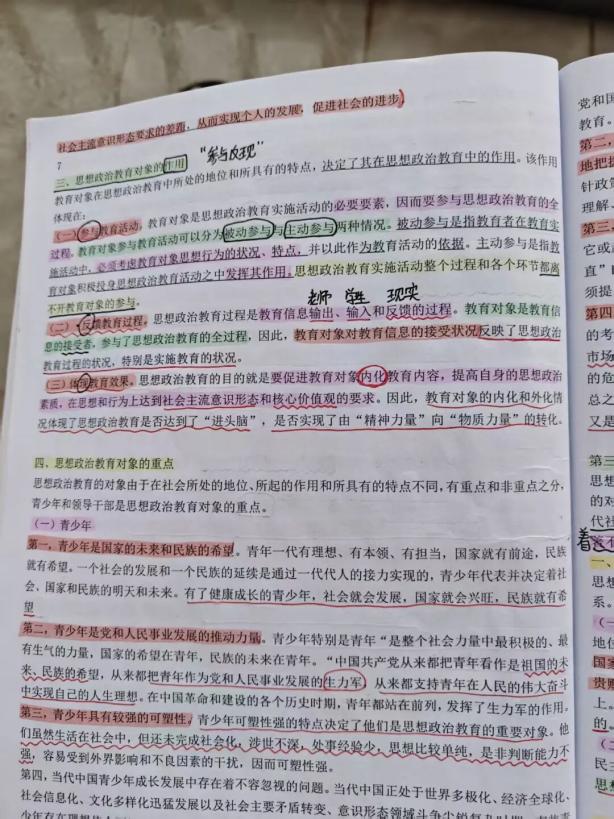 社会主流意识形态要求的差距，从而实现个人的发展，促进社会的进步。
7
"参与反现"
三、思想政治教育对象的作用
教育对象在思想政治教育中所处的地位和所具有的特点，决定了其在思想政治教育中的作用。该作用
体现在：
（一）参与教育活动。教育对象是教育实施活动的必要要素，因而要参与思想政治教育的全
过程。教育对象参与教育活动可以分为被动参与与主动参与两种情况。被动参与是指教育者在教育实
施活动中，必须考虑教育对象思想行为的状况、特点，并以此作为教育活动的依据。主动参与是指教
育对象积极投身思想政治教育活动之中发挥其作用。思想政治教育实施活动整个过程和各个环节都离
不开教育对象的参与。
老师 学生 现实
（二）反馈教育过程。思想政治教育过程是教育信息输出、输入和反馈的过程。教育对象是教育信
息的接受者，参与了思想政治教育的全过程，因此，教育对象对教育信息的接受状况反映了思想政治
教育过程的状况，特别是实施教育的状况。
（三）体现教育效果。思想政治教育的目的就是要促进教育对象内化教育内容，提高自身的思想政治
素质，在思想和行为上达到社会主流意识形态和核心价值观的要求。因此，教育对象的内化和外化情
况体现了思想政治教育是否达到了“进头脑”，是否实现了由“精神力量”向“物质力量”的转化。
四、思想政治教育对象的重点
思想政治教育的对象由于在社会所处的地位、所起的作用和所具有的特点不同，有重点和非重点之分，
青少年和领导干部是思想政治教育对象的重点。
（一）青少年
第一，青少年是国家的未来和民族的希望。青年一代有理想、有本领、有担当，国家就有前途，民族
就有希望。一个社会的发展和一个民族的延续是通过一代代人的接力实现的，青少年代表并决定着社
会、国家和民族的明天和未来。有了健康成长的青少年，社会就会发展，国家就会兴旺，民族就有希
望
第二，青少年是党和人民事业发展的推动力量。青少年特别是青年“是整个社会力量中最积极的、最
有生气的力量，国家的希望在青年，民族的未来在青年。“中国共产党从来都把青年看作是祖国的未
来、民族的希望，从来都把青年作为党和人民事业发展的生力军，从来都支持青年在人民的伟大奋斗
中实现自己的人生理想。在中国革命和建设的各个历史时期，青年都站在前列，发挥了生力军的作用。
第三，青少年具有较强的可塑性，青少年可塑性强的特点决定了他们是思想政治教育的重要对象。他
们虽然生活在社会中，但还未完成社会化，涉世不深，处事经验少，思想比较单纯，是非判断能力不
强，容易受到外界影响和不良因素的干扰，因而可塑性强。
第四，当代中国青少年成长发展中存在着不容忽视的问题。当代中国正处于世界多极化、经济全球化、
社会信息化、文化多样化迅猛发展以及社会主要矛盾转变、意识形态领域斗争尖锐复杂
党和国
教育。
第二，
地把握
针政策
理解、
第三，
它或
直”
须提
第四
的考
市场
的危
总之
又是
第三
思想
的对
代社
着
一、
思想
系。
（一
地位
国家
贵
上。
的。
（
民主
思想